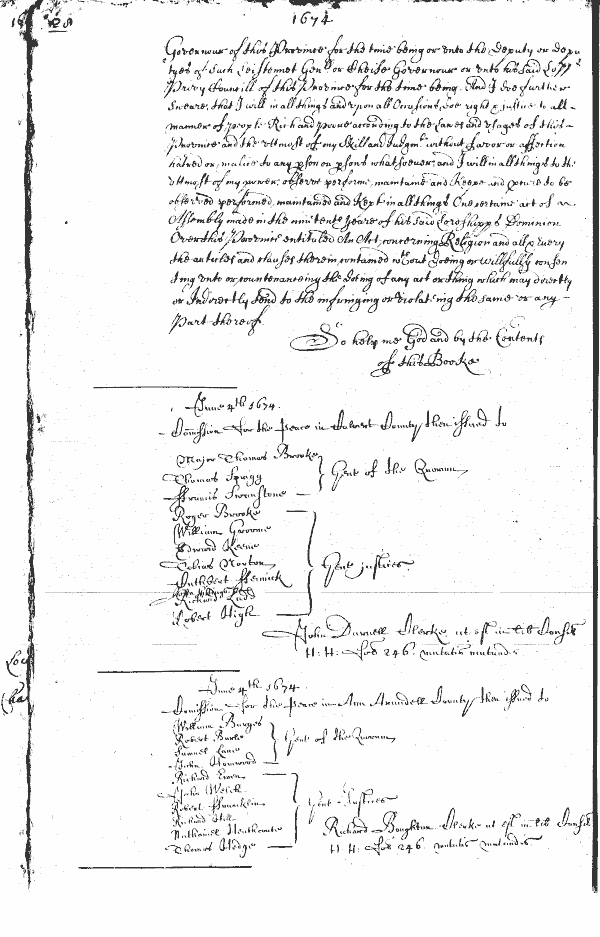 1674
28
Governour of this Province for the time being or unto the deputy or depu
tyes of such Leiftenet Gen̄ll or Cheife Governour or unto his said Lopps
Privy Councill of this Province for the time being. And I doe further
Sweare, that I will in all things and upon all Occasions, doe right & justice to all
manner of people Rich and poore according to the Lawes and usages of this
Province and the uttmost of my Skill and Judgmt without favor or affection
hatred or malice to any pson or psons whatsoever, and I will in all things to the
uttmost of my power, observe performe, maintaine and Keepe and procure to be
observed performed, maintained and Kept in all things One certaine act of
Assembly made in the nineteenth yeare of his said Lordshipps Dominion
Over this Province entituled An Act concerning Religion and all & every
the articles and clauses therein contained without doeing or willfully consen
ting unto or countenancing the doing of any act or thing which may directly
or Indirectly tend to the infringing or violating the same or any
part thereof.
So help me God and by the Contents
of this Booke
June 4th 1674.
Comission for the Peace in Calvert County then issued to
Major Thomas Brooke
Thomas Sprigg
Francis Swanstone
Gent of the Quorum
Roger Brooke
William Groome
Edward Keene
Tobias Norton
Cuthbert Fenwick
Richard Ladd
Robert Heigh
Gent justices
John Darnell Clerke ut est in lib Consil
H: H: Fol 246. mutatis mutandis
June 4th 1674.
Comission for the Peace in Ann Arundell County then issued to
William Burges
Robert Burle
Samuel Lane
John Homwood
Gent of the Quorum
Richard Ewen
John Welch
Robert Francklin
Richard Hill
Nathaniel Heathcoate
Thomas Hedge
Gent Justices
Richard Boughton Clerke ut est in lib Consil
H: H: Fol 246. mutatis mutandis